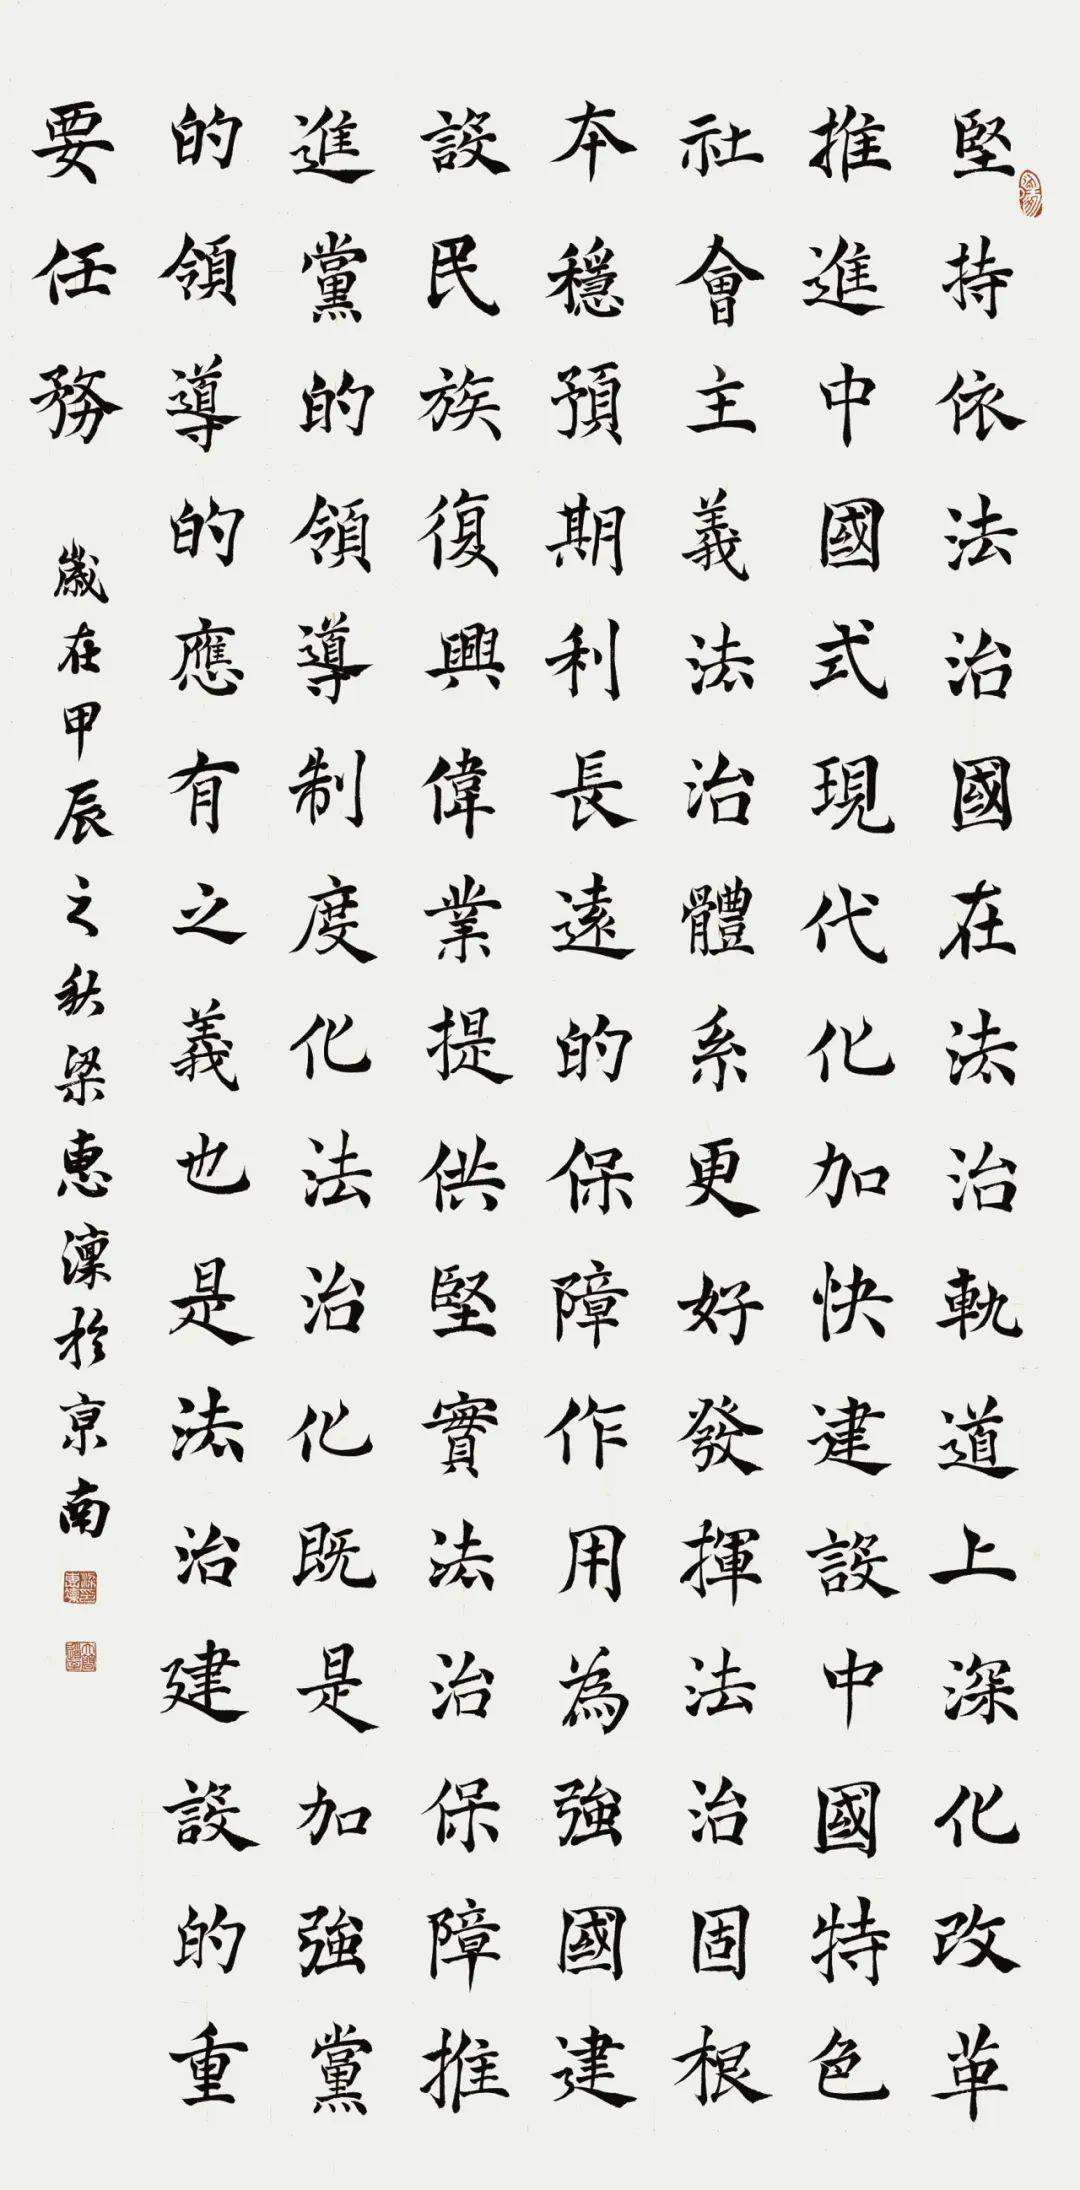 堅持依法治國在法治軌道上深化改革
推進中國式現代化加快建設中國特色
社會主義法治體系更好發揮法治固根
本穩預期利長遠的保障作用為強國建
設民族復興偉業提供堅實法治保障推
進黨的領導制度化法治化既是加強黨
的領導的應有之義也是法治建設的重
要任務
歲在甲辰之秋梁惠澟於京南